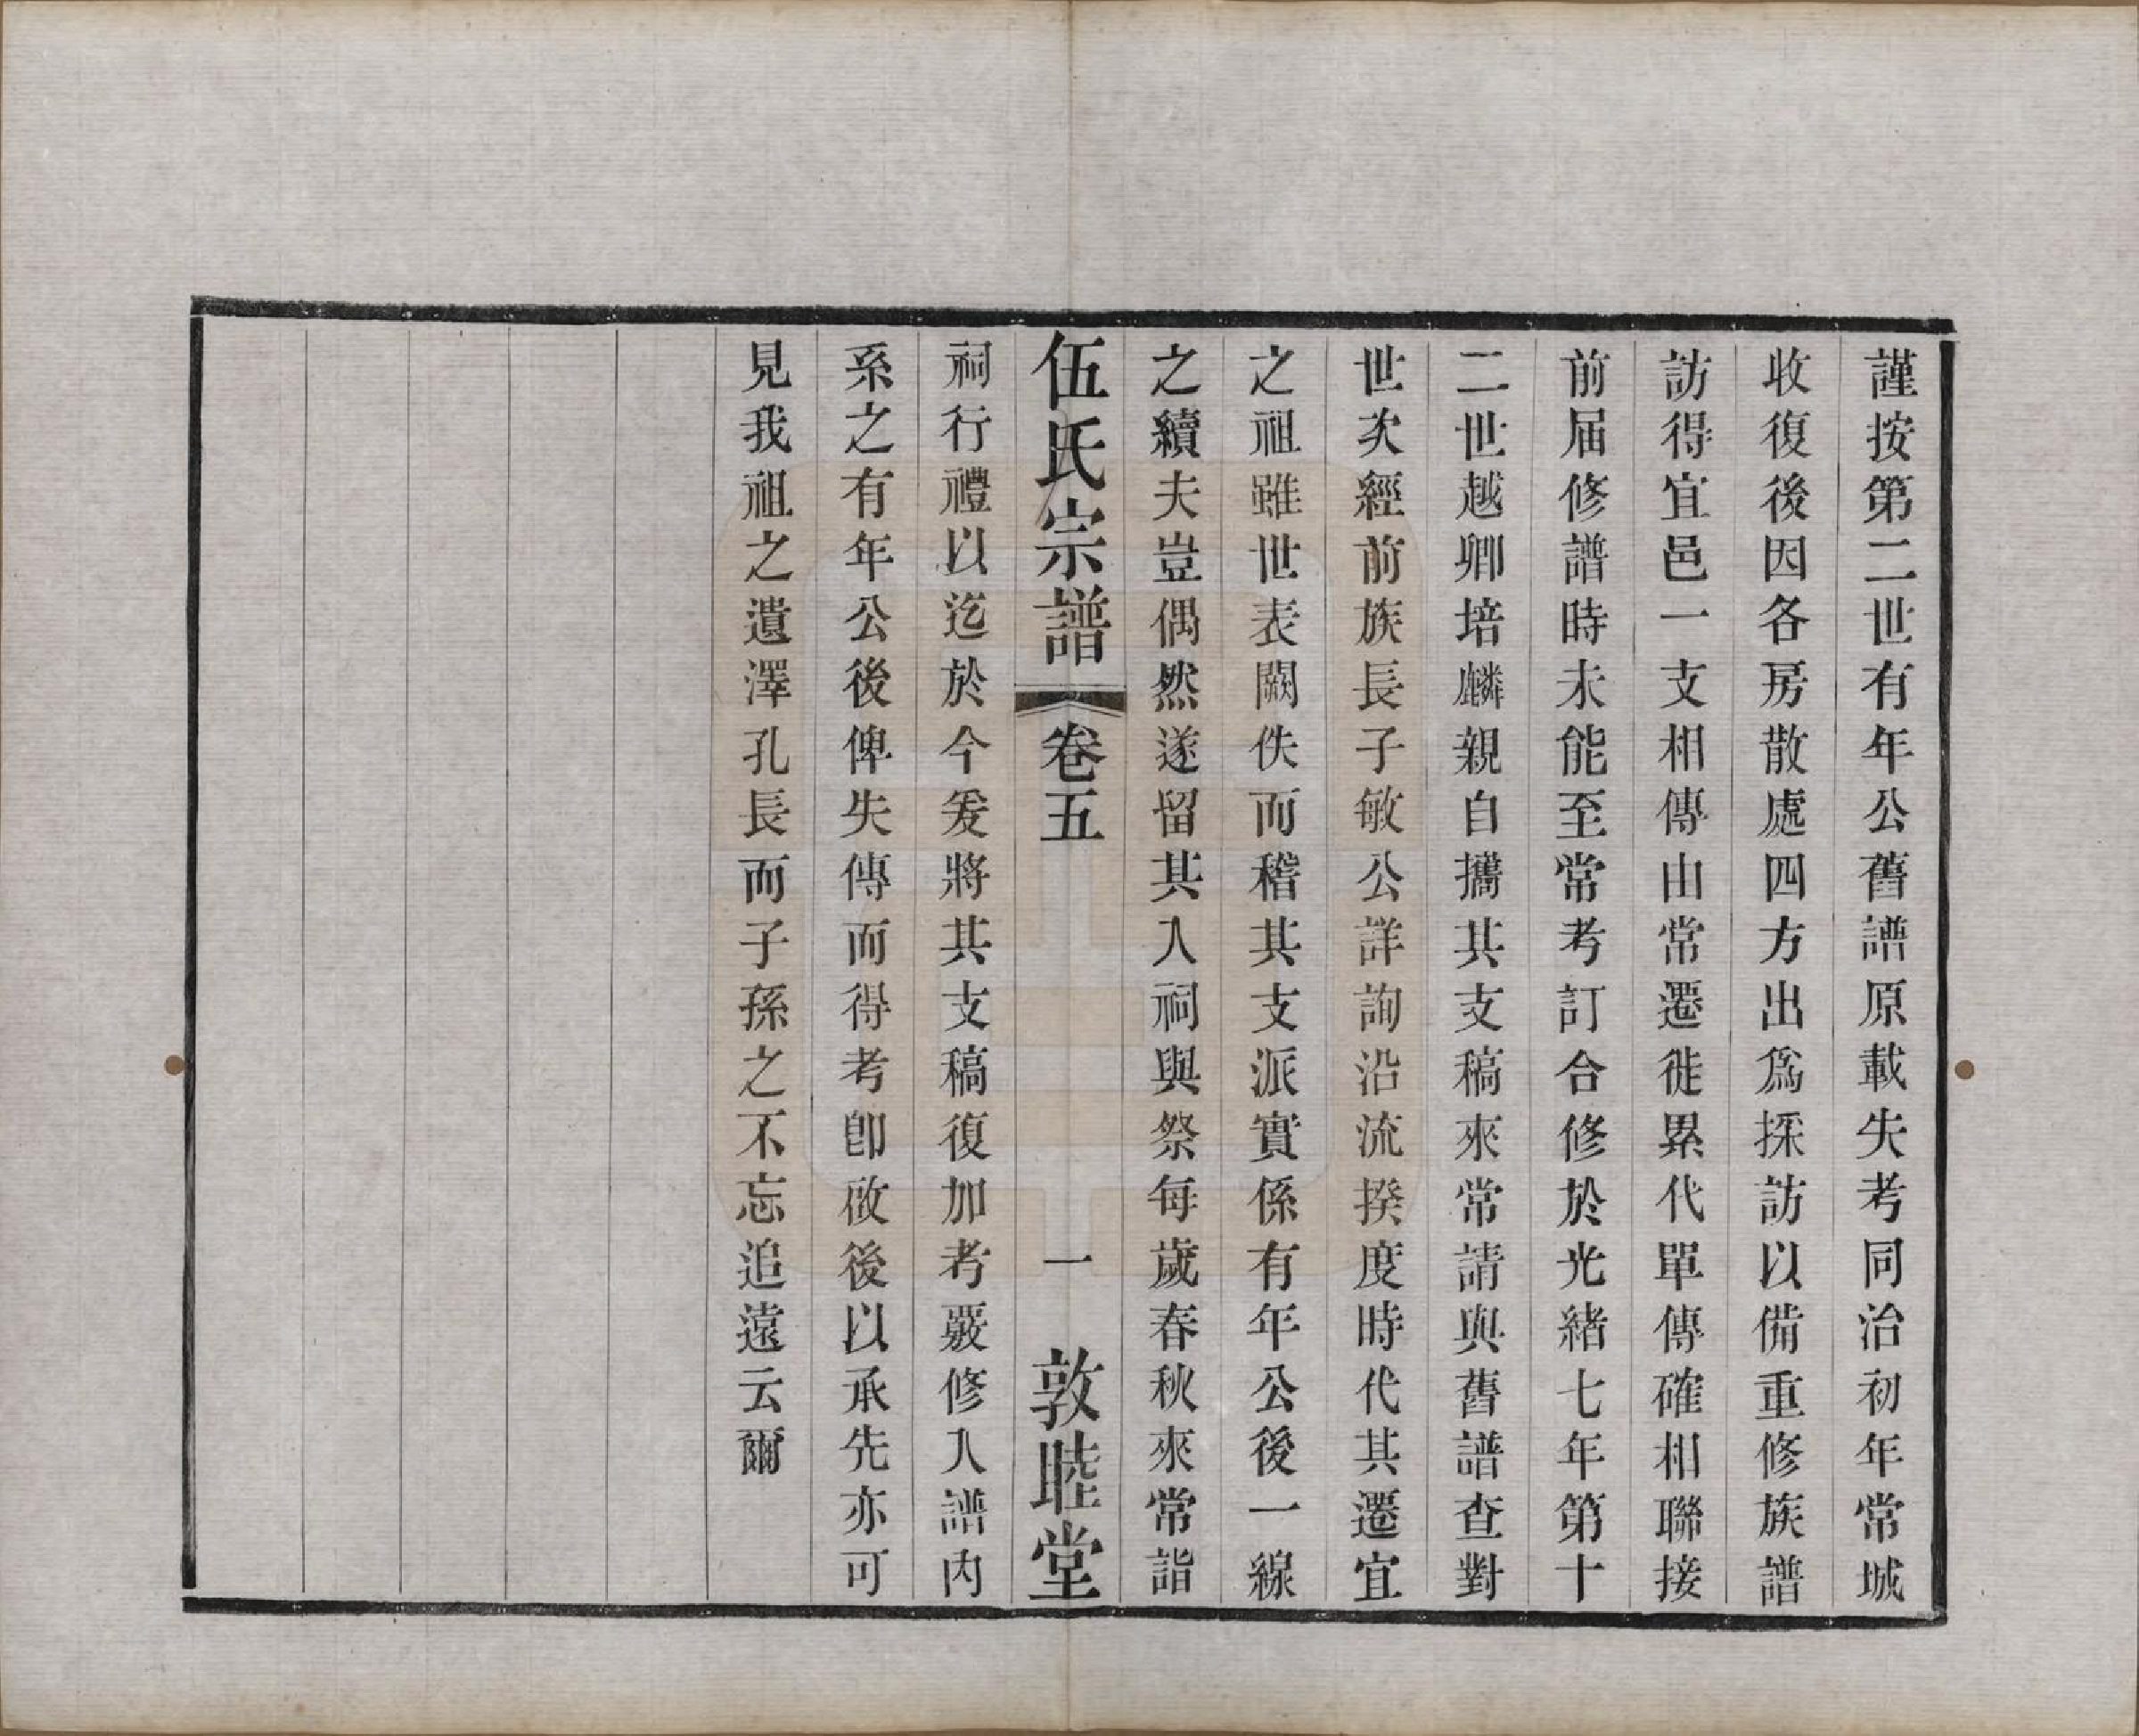 謹按第二世有年公舊譜原載失考同治初年常城
收復後因各房散處四方出爲採訪以備重修族譜
訪得宜邑一支相傳由常遷徙累代單傳確相聯接
前届修譜時未能至常考訂合修於光緒七年第十
二世越卿培麟親自攜其支稿來常請與舊譜查對
世次經前族長子敏公詳詢沿流揆度時代其遷宜
之祖雖世表闕佚而稽其支派實係有年公後一線
之續夫豈偶然遂留其入祠與祭每歲春秋來常詣
伍氏宗譜 卷五 一 敦睦堂
祠行禮以迄於今爰將其支稿復加考覈修入譜内
系之有年公後俾失傳而得考卽啟後以承先亦可
見我祖之遺澤孔長而子孫之不忘追遠云爾